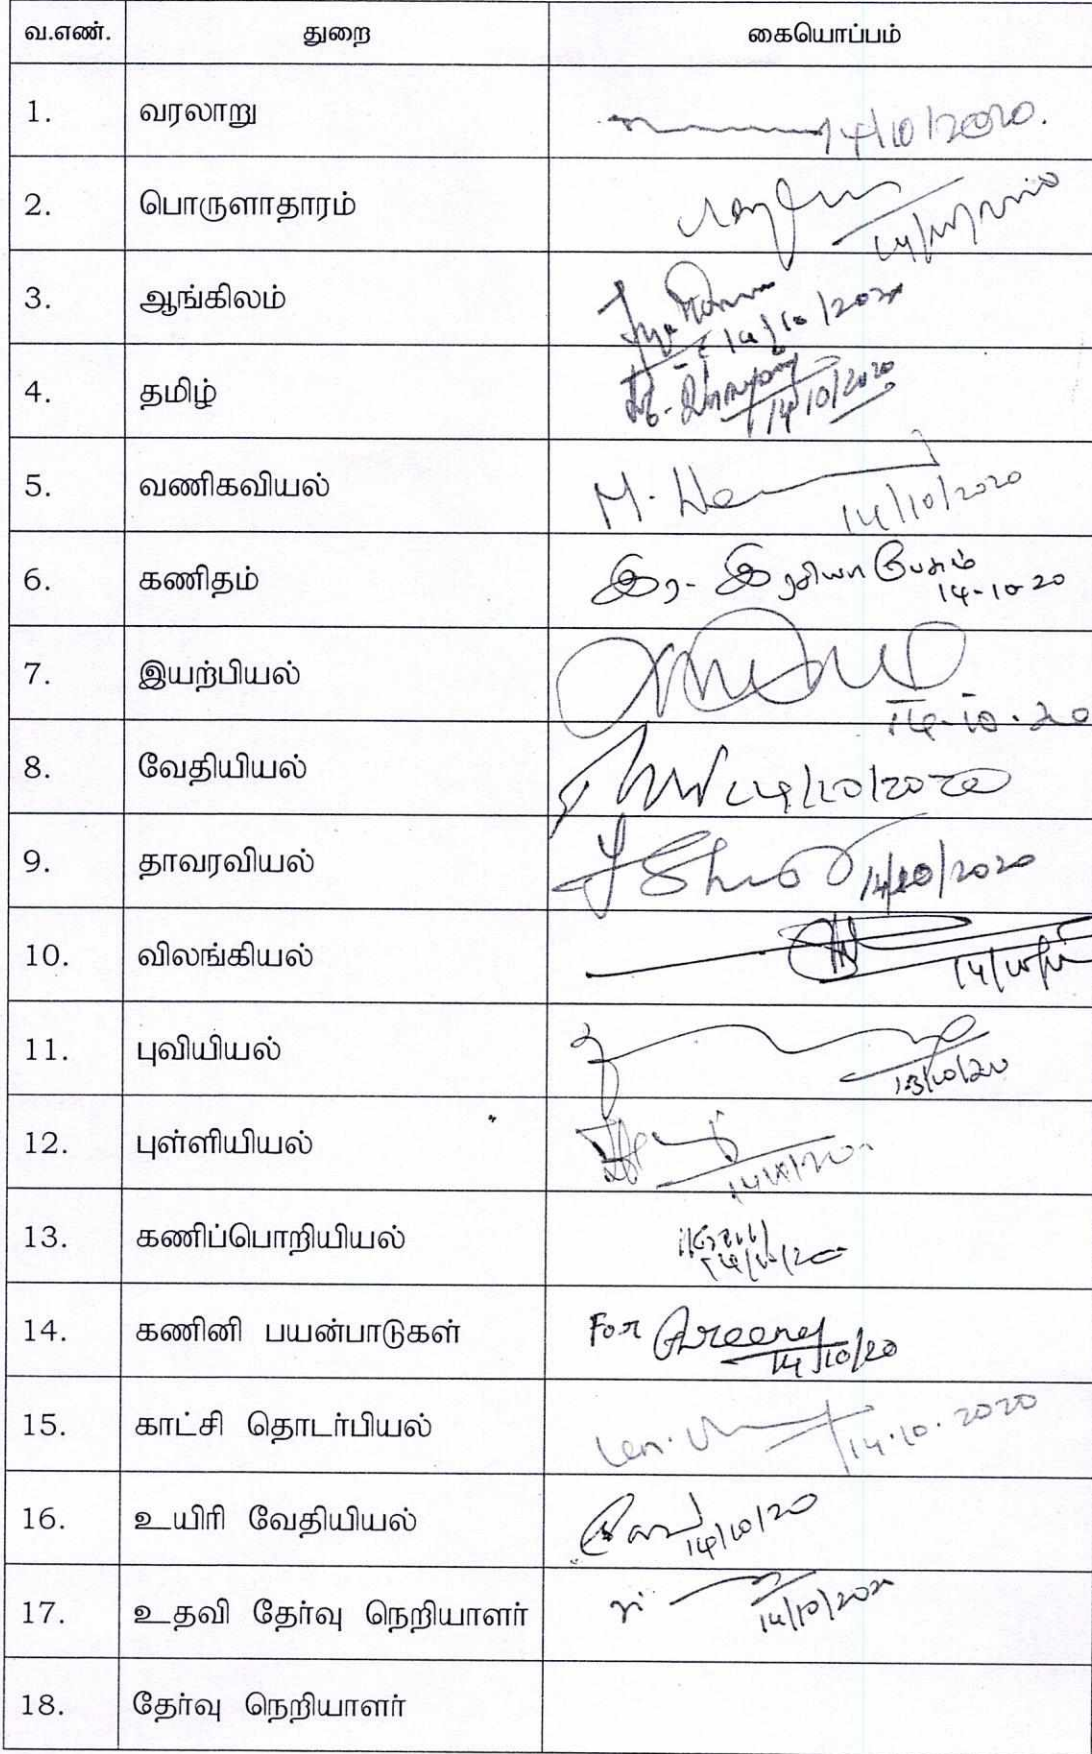 வ.எண். துறை கையொப்பம்
1. வரலாறு 14/10/2020.
2. பொருளாதாரம்
3. ஆங்கிலம் 14/10/2020
4. தமிழ் 14/10/2020
5. வணிகவியல் M. 14/10/2020
6. கணிதம் இர-
14-10-20
7. இயற்பியல் 14-10-20
8. வேதியியல் 14/10/2020
9. தாவரவியல் 14/10/2020
10. விலங்கியல்
11. புவியியல் 13/10/20
12. புள்ளியியல் 14/10/20
13. கணிப்பொறியியல் 14/10/20
14. கணினி பயன்பாடுகள் For
14/10/20
15. காட்சி தொடர்பியல் 14.10.2020
16. உயிரி வேதியியல் 14/10/20
17. உதவி தேர்வு நெறியாளர் 14/10/2020
18. தேர்வு நெறியாளர்